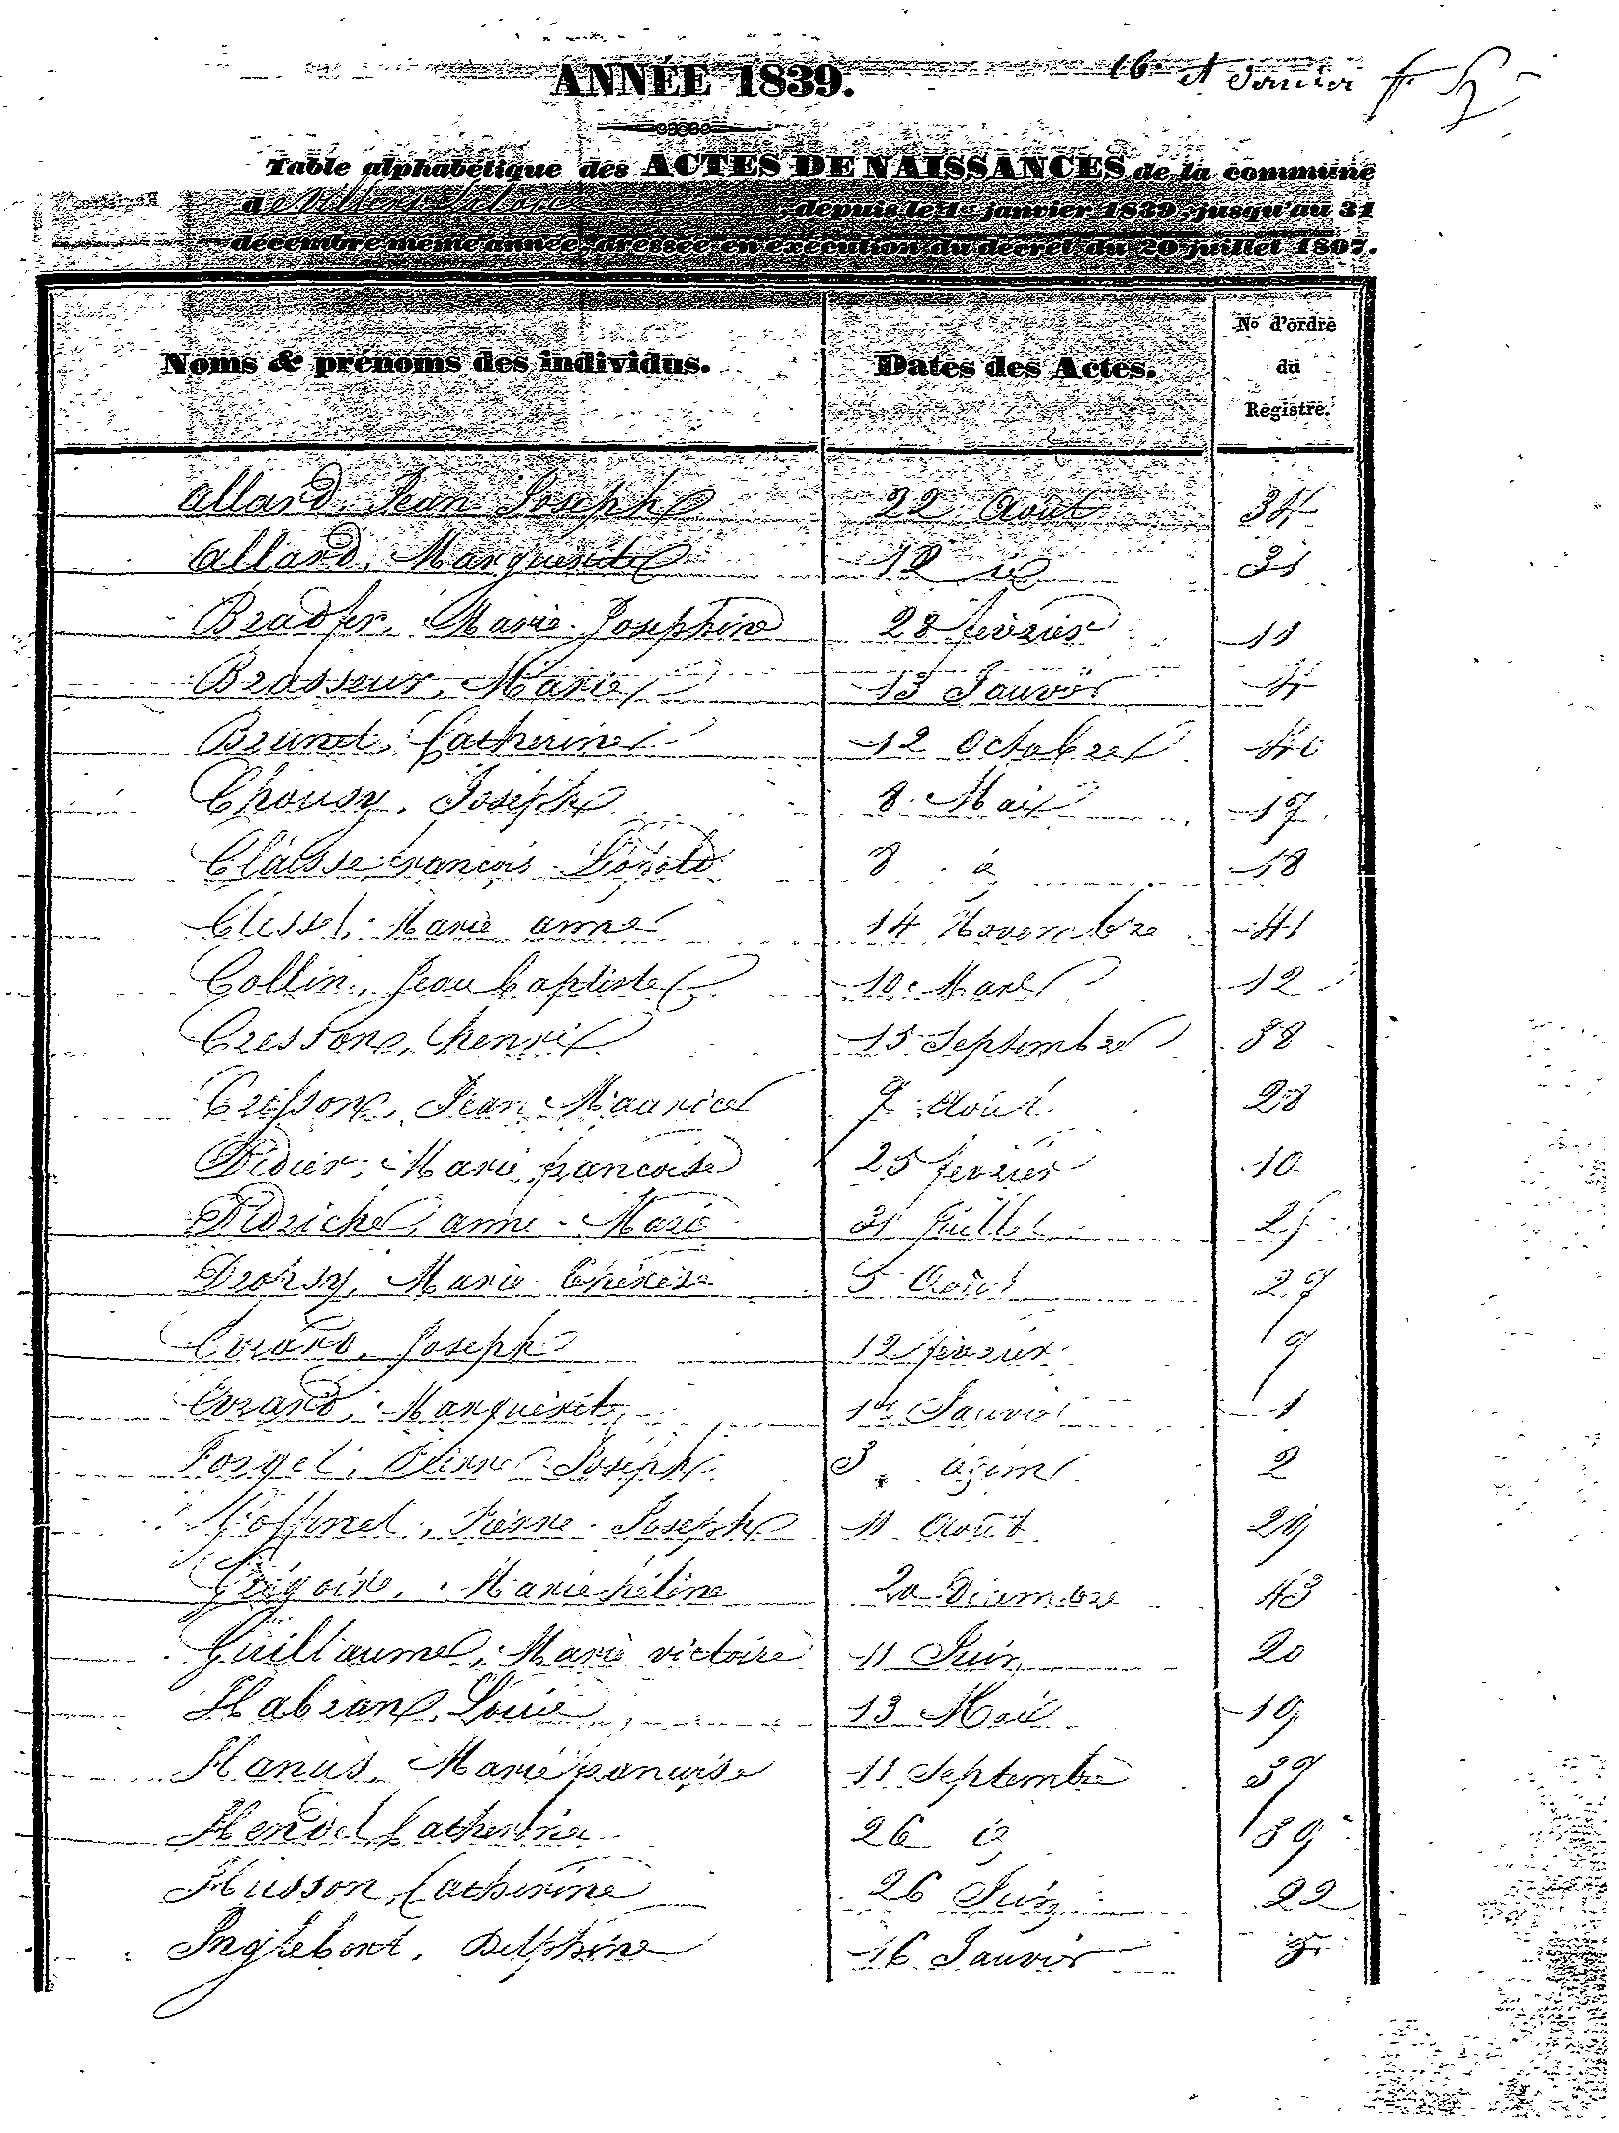 ANNÉE 1839.
16e et dernier f.
Table alphabétique des ACTES DE NAISSANCES de la commune
d depuis le 1er janvier 1839, jusqu'au 31
décembre même année, dressée en exécution du décret du 20 juillet 1807.
Noms & prénoms des individus. Dates des Actes. No d'ordre du Registre.
Allard, Jean Joseph 22 Août 34
Allard, Marguerite 18 id 31
Bradfer, Marie Josephine 28 février 11
Brasseur, Marie 13 Janvier 4
Brunet, Catherine 12 Octobre 40
Chousy, Joseph 8 Mai 17
Claisse françois 8 18
Clesse, Marie anne 14 Novembre 41
Collin, Jean baptiste 10 Mars 12
Cresson, henri 15 Septembre 38
Cresson, Jean Maurice 7 Août 28
Didier, Marie françoise 25 février 10
Didriche, anne Marie 31 Juillet 25
Drohsy, Marie thérèse 5 Août 27
Evrard, Joseph 12 février 9
Evrard, Marguerite 1er Janvier 1
Forget, Pierre Joseph 3 2
Goffinet, Pierre Joseph 11 Août 29
Grégoire, Marie hélène 20 Décembre 43
Guillaume, Marie victoire 11 Juin 20
Habran, Louis 13 Mai 19
Hanus, Marie françoise 11 Septembre 37
Hendel Catherine 26 id 39
Husson, Catherine 26 Juin 22
Inglebert, Delphine 16 Janvier 5